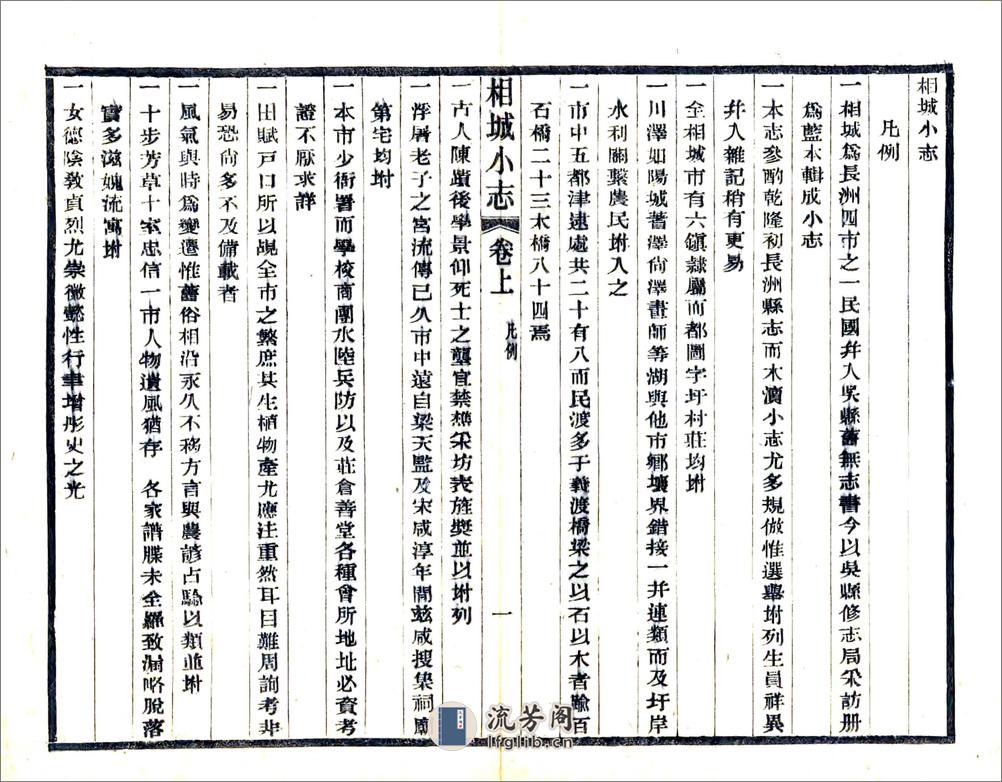 相城小志
凡例
一相城爲長洲四市之一民國幷入吳縣舊無志書今以吳縣修志局采訪册
爲藍本輯成小志
一本志參酌乾隆初長洲縣志而木瀆小志尤多規倣惟選舉坿列生員祥異
幷入雜記稍有更易
一全相城市有六鎮隷屬而都圖字圩村莊均坿
一川澤如陽城蓄澤尙澤畫師等湖與他市鄉壤界錯接一幷連類而及圩岸
水利關繫農民坿入之
一市中五都津遠處共二十有八而民渡多于義渡橋梁之以石以木者踰百
石橋二十三木橋八十四焉
相城小志
卷上
凡例
一
一古人陳蹟後學景仰死士之壟宜禁樵采坊表旌奬並以坿列
一浮屠老子之宮流傳已久市中遠自梁天監及宋咸淳年間茲咸搜集祠廟
第宅均坿
一本市少衙署而學校商團水陸兵防以及莊倉善堂各種會所地址必資考
證不厭求詳
一田賦戸口所以覘全市之繁庶其生植物產尤應注重然耳目難周詢考非
易恐尙多不及備載者
一風氣與時爲變遷惟舊俗相沿永久不移方言與農諺占驗以類並坿
一十步芳草十室忠信一市人物遺風猶存
各家譜牒未全羅致漏略脫落
實多滋媿流寓坿
一女德陰敎貞烈尤崇徽懿性行聿增彤史之光
流芳阁
lfglib.cn